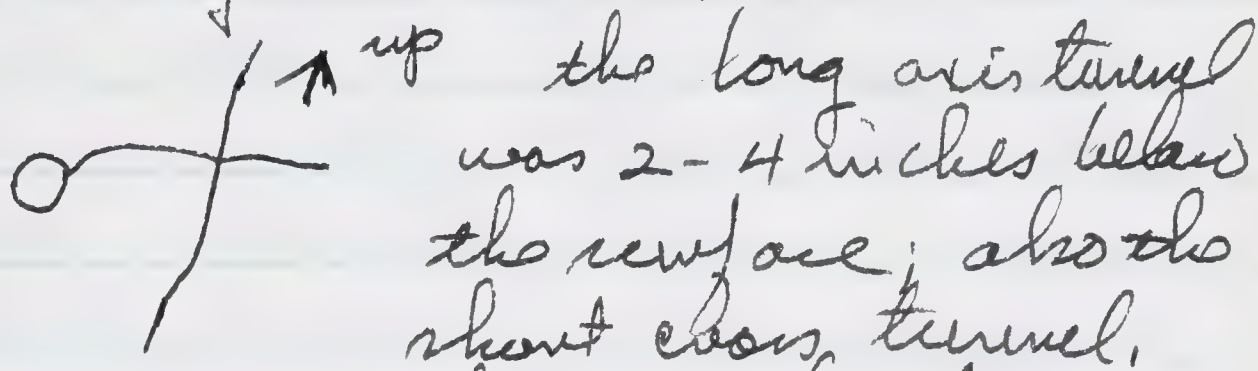 up the long axis tunnel
was 2-4 inches below
the surface; also the
short cross tunnel.